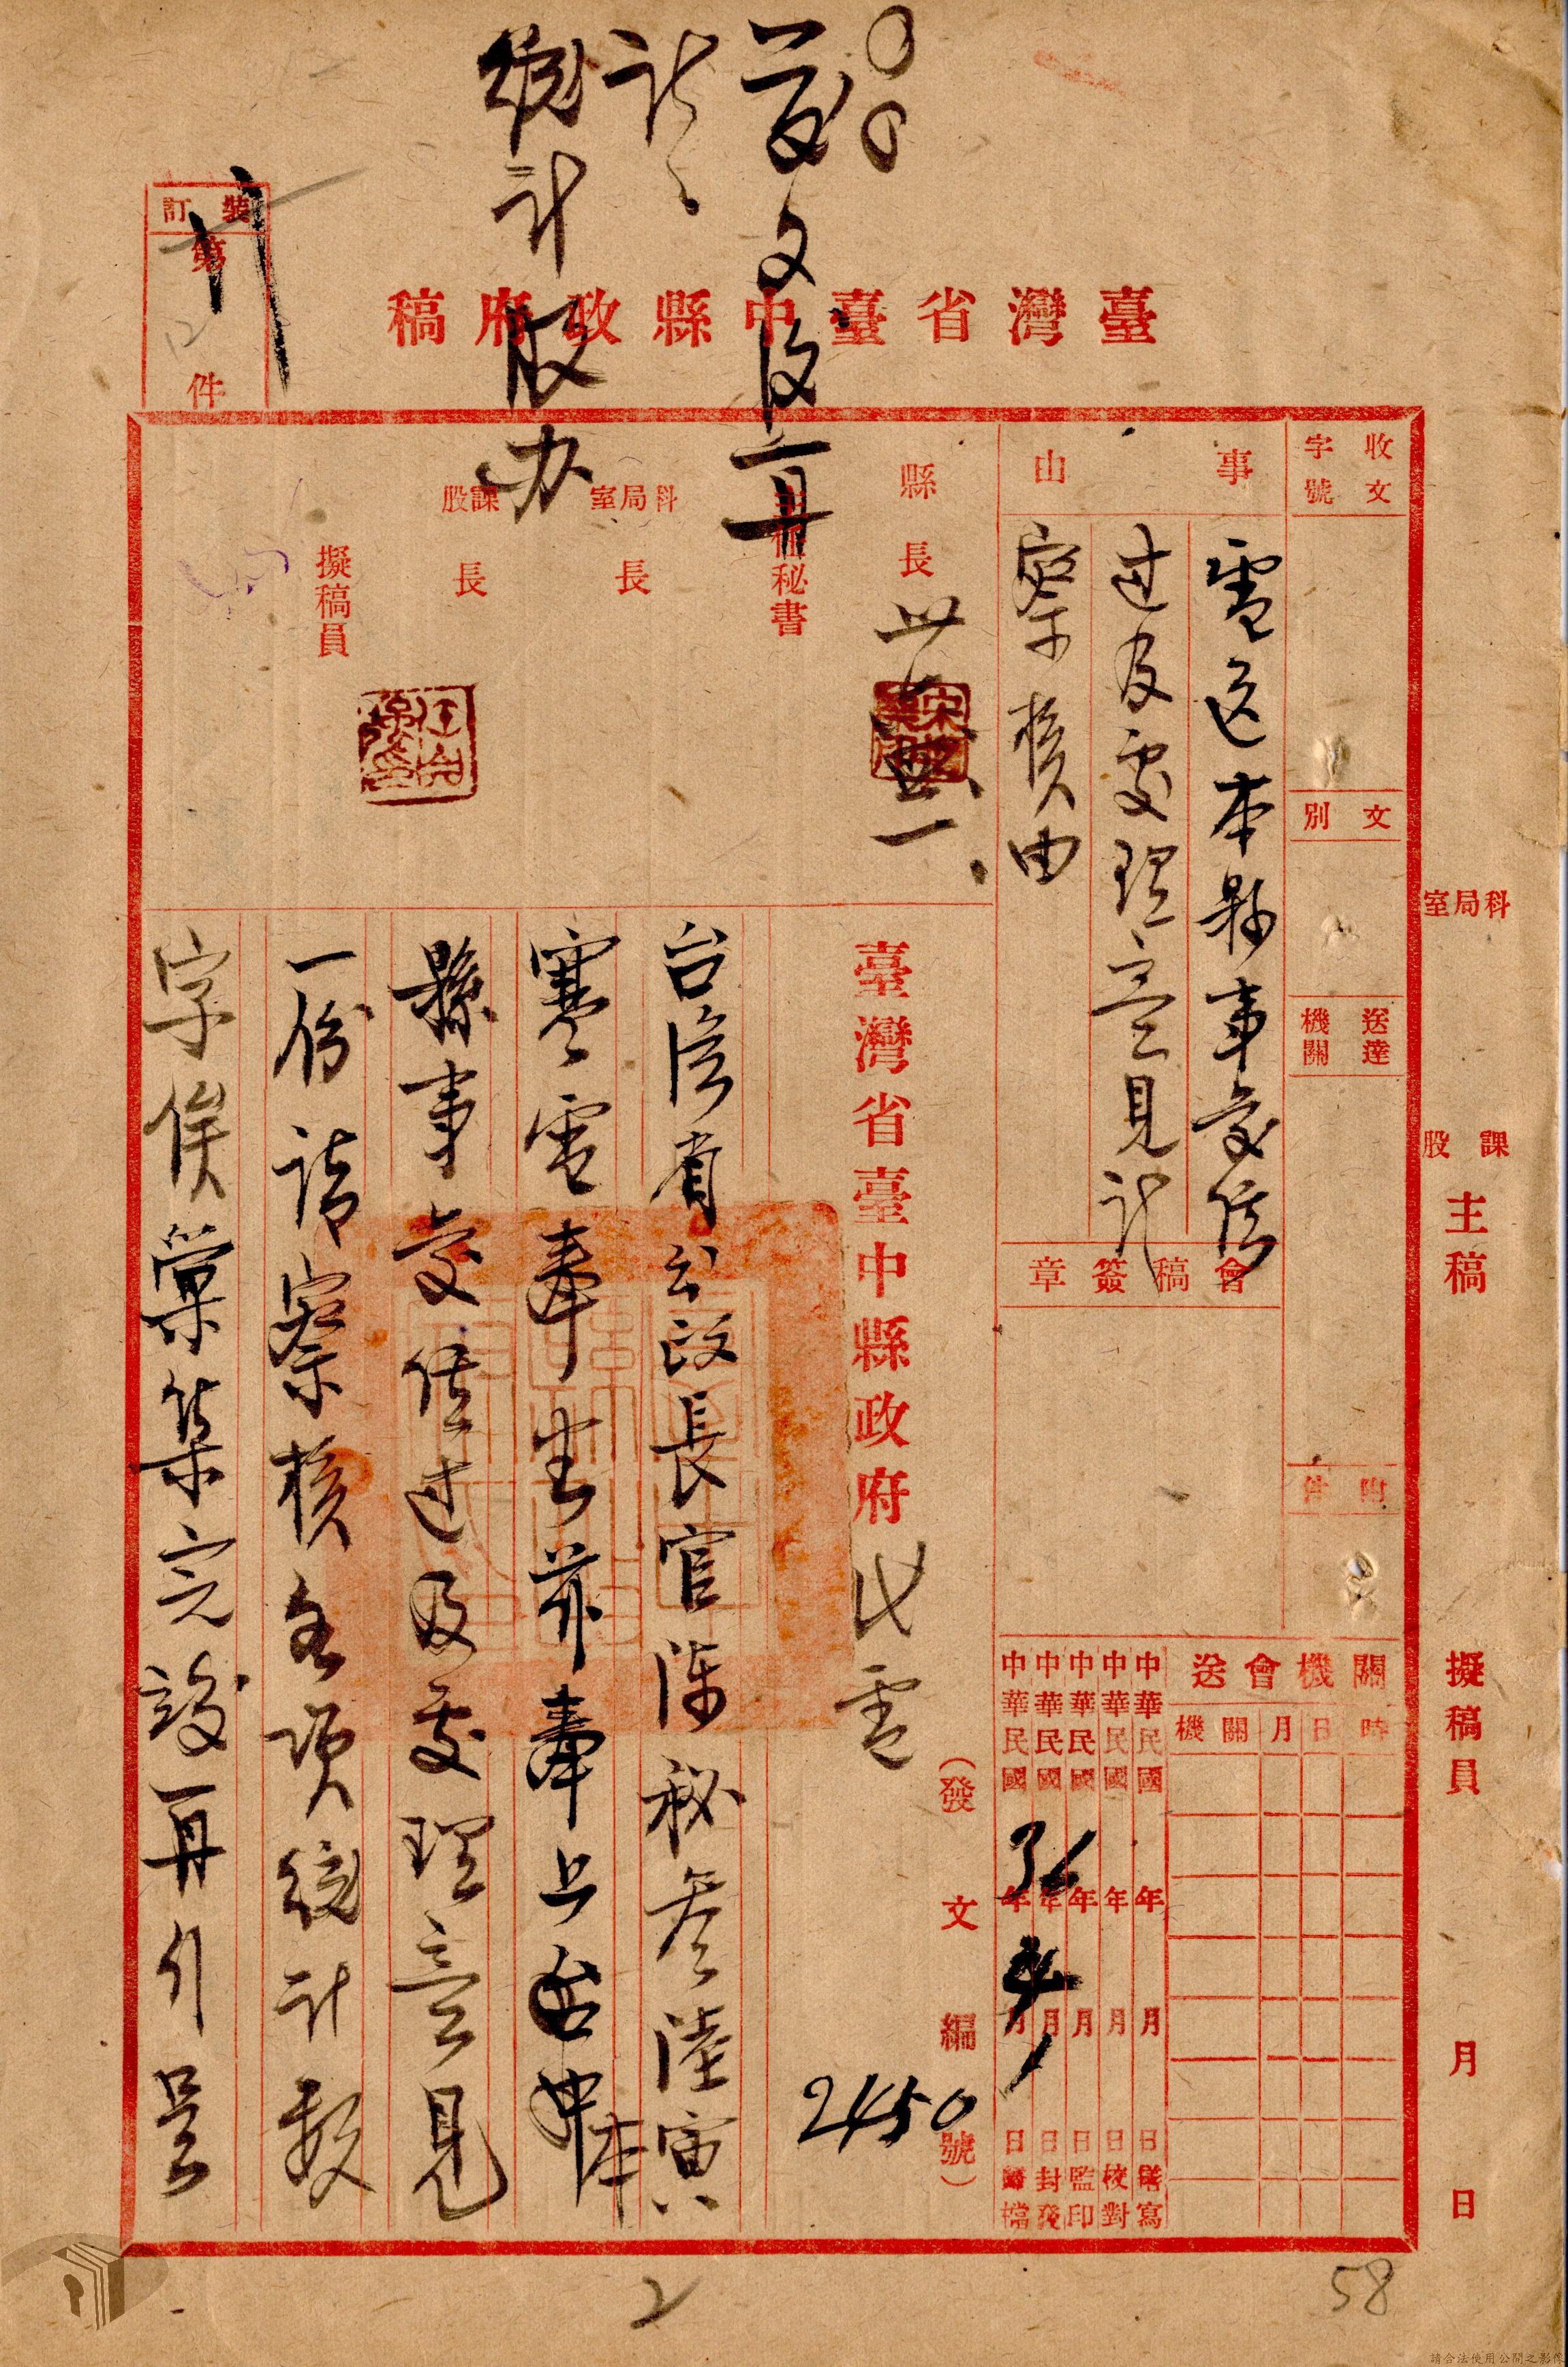 發文後再
送
統計股办
裝訂
第
件
臺灣省臺中縣政府稿
收文
字號
文別
送達
機關
附件
事由
電送本縣事變經
过及處理意見記
察核由
會稿簽章
縣長
主任秘書
科局室長
課股長
擬稿員
科局室
課股
主稿
擬稿員
月
日
關機會送
時日月關機
中華民國 年 月 日繕寫
中華民國 年 月 日校對
中華民國 年 月 日監印
中華民國 年 月 日封發
中華民國36年 月 日歸檔
臺灣省臺中縣政府代電
(發文編號)
2450
台灣省公政長官陳秘参陸寅
寒電奉悉茲奉上本
縣事變經过及處理意見
一份請察核至項統計数
字俟彙集完竣再行呈
2
58
請合法使用公開之影像